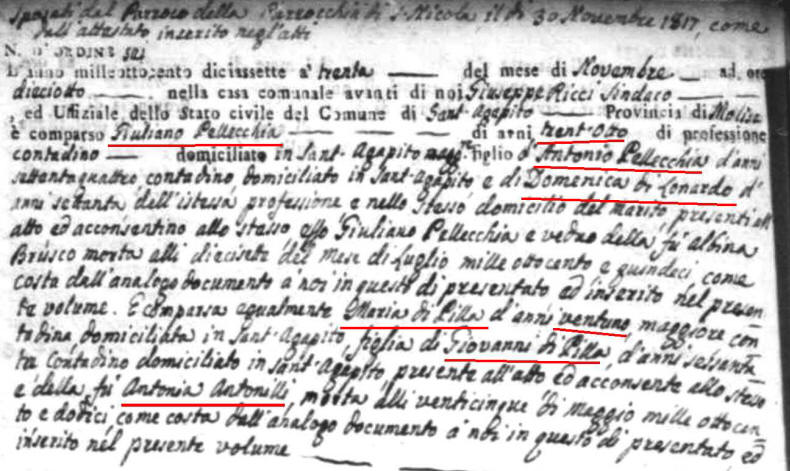 Sposati dal Parroco della Parrocchia di S. Nicola il dì 30 Novembre 1817, come
dall'attestato inserito negl'atti
N. D'ORDINE
L'anno milleottocento diciassette a' trenta del mese di Novembre ad ore
dieciotto nella casa comunale avanti di noi Giuseppe Ricci Sindaco
, ed Uffiziale dello Stato civile del Comune di Sant-Agapito Provincia di Molise
è comparso Giuliano Pellecchia di anni trent-otto di professione
contadino domiciliato in Sant-Agapito magg.re figlio d'Antonio Pellecchia d'anni
settantaquattro, contadino domiciliato in Sant-Agapito e di Domenica di Lonardo d'
anni settanta dell'istessa professione e nello stesso domicilio del marito, presenti all'
atto ed acconsentino allo stesso esso Giuliano Pellecchia e vedovo della fù Albina
Brusco morta alli diecisete del mese di Luglio mille ottocento e quindeci, come
costa dall'analogo documento a noi in questo dì presentato ed inserito nel presen-
te volume. E comparsa egualmente Maria di Pilla d'anni ventuno, maggiore con-
tadina domiciliata in Sant-Agapito, figlia di Giovanni di Pilla, d'anni sessanta-
tre contadino domiciliato in Sant-Agapito, presente all'atto ed acconsente allo stesso
e della fù Antonia Antonilli, morta alli venticinque di Maggio mille ottocen-
to e dodici come costa dall'analogo documento a noi in questo dì presentato ed
inserito nel presente volume